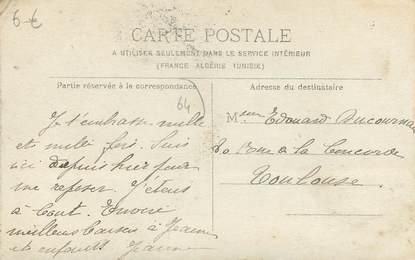 6-€
CARTE POSTALE
A UTILISER SEULEMENT DANS LE SERVICE INTÉRIEUR
(FRANCE ALGÉRIE TUNISIE)
Partie réservée à la correspondance
Adresse du destinataire
64
Je t'embrasse mille
et mille fois. Suis
ici depuis hier pour
me reposer. J'étais
à bout. Envoie
meilleurs baisers à Jeanne
et enfants Jeanne
Msieur Edouard Ducournau
Rue de la Concorde
Toulouse.